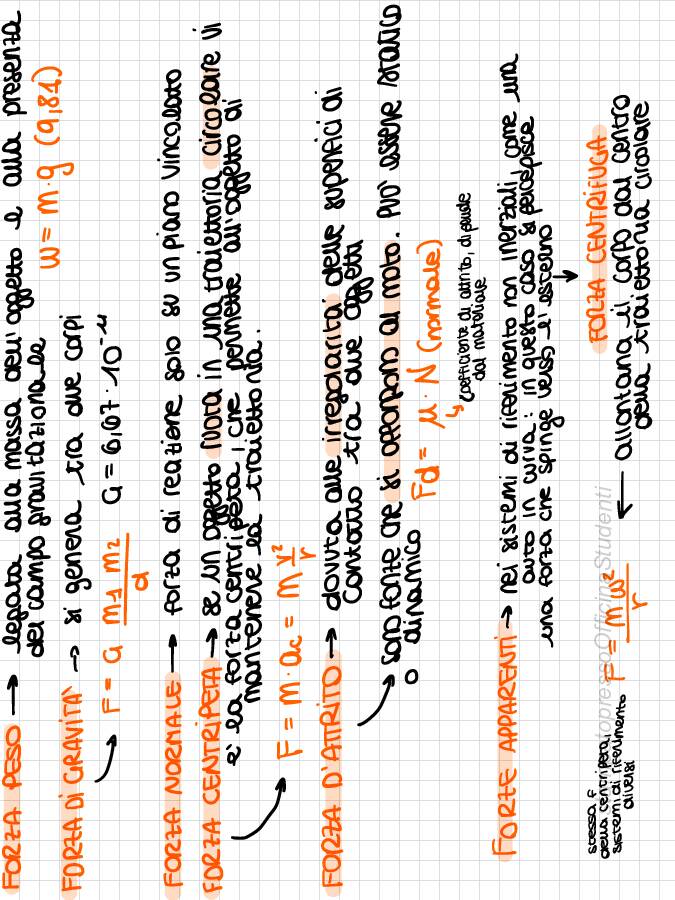 FORZA PESO → legata alla massa dell'oggetto e alla presenza
del campo gravitazionale
w = m·g (9,81)
FORZA DI GRAVITA' → si genera tra due corpi
F = G m1 m2 / d
G = 6,67·10⁻¹¹
FORZA NORMALE → forza di reazione solo su un piano vincolato
FORZA CENTRIPETA → se un oggetto ruota in una traiettoria circolare vi
è la forza centripeta, che permette all'oggetto di
mantenere la traiettoria.
F = m·ac = m v²/r
FORZA D'ATTRITO → dovuta alle irregolarità delle superfici di
contatto tra due oggetti
sono forze che si oppongono al moto. PUO' essere statico
o dinamico
Fd = μ·N (normale)
coefficiente di attrito, dipende
dal materiale
FORZE APPARENTI → nei sistemi di riferimento non inerziali, come una
auto in curva: in questo caso si percepisce
una forza che spinge verso l'esterno
FORZA CENTRIFUGA
allontana il corpo dal centro
della traiettoria circolare
F = m w² / r
stessa F
della centripeta,
sistemi di riferimento
diversi
topressoOfficineStudenti